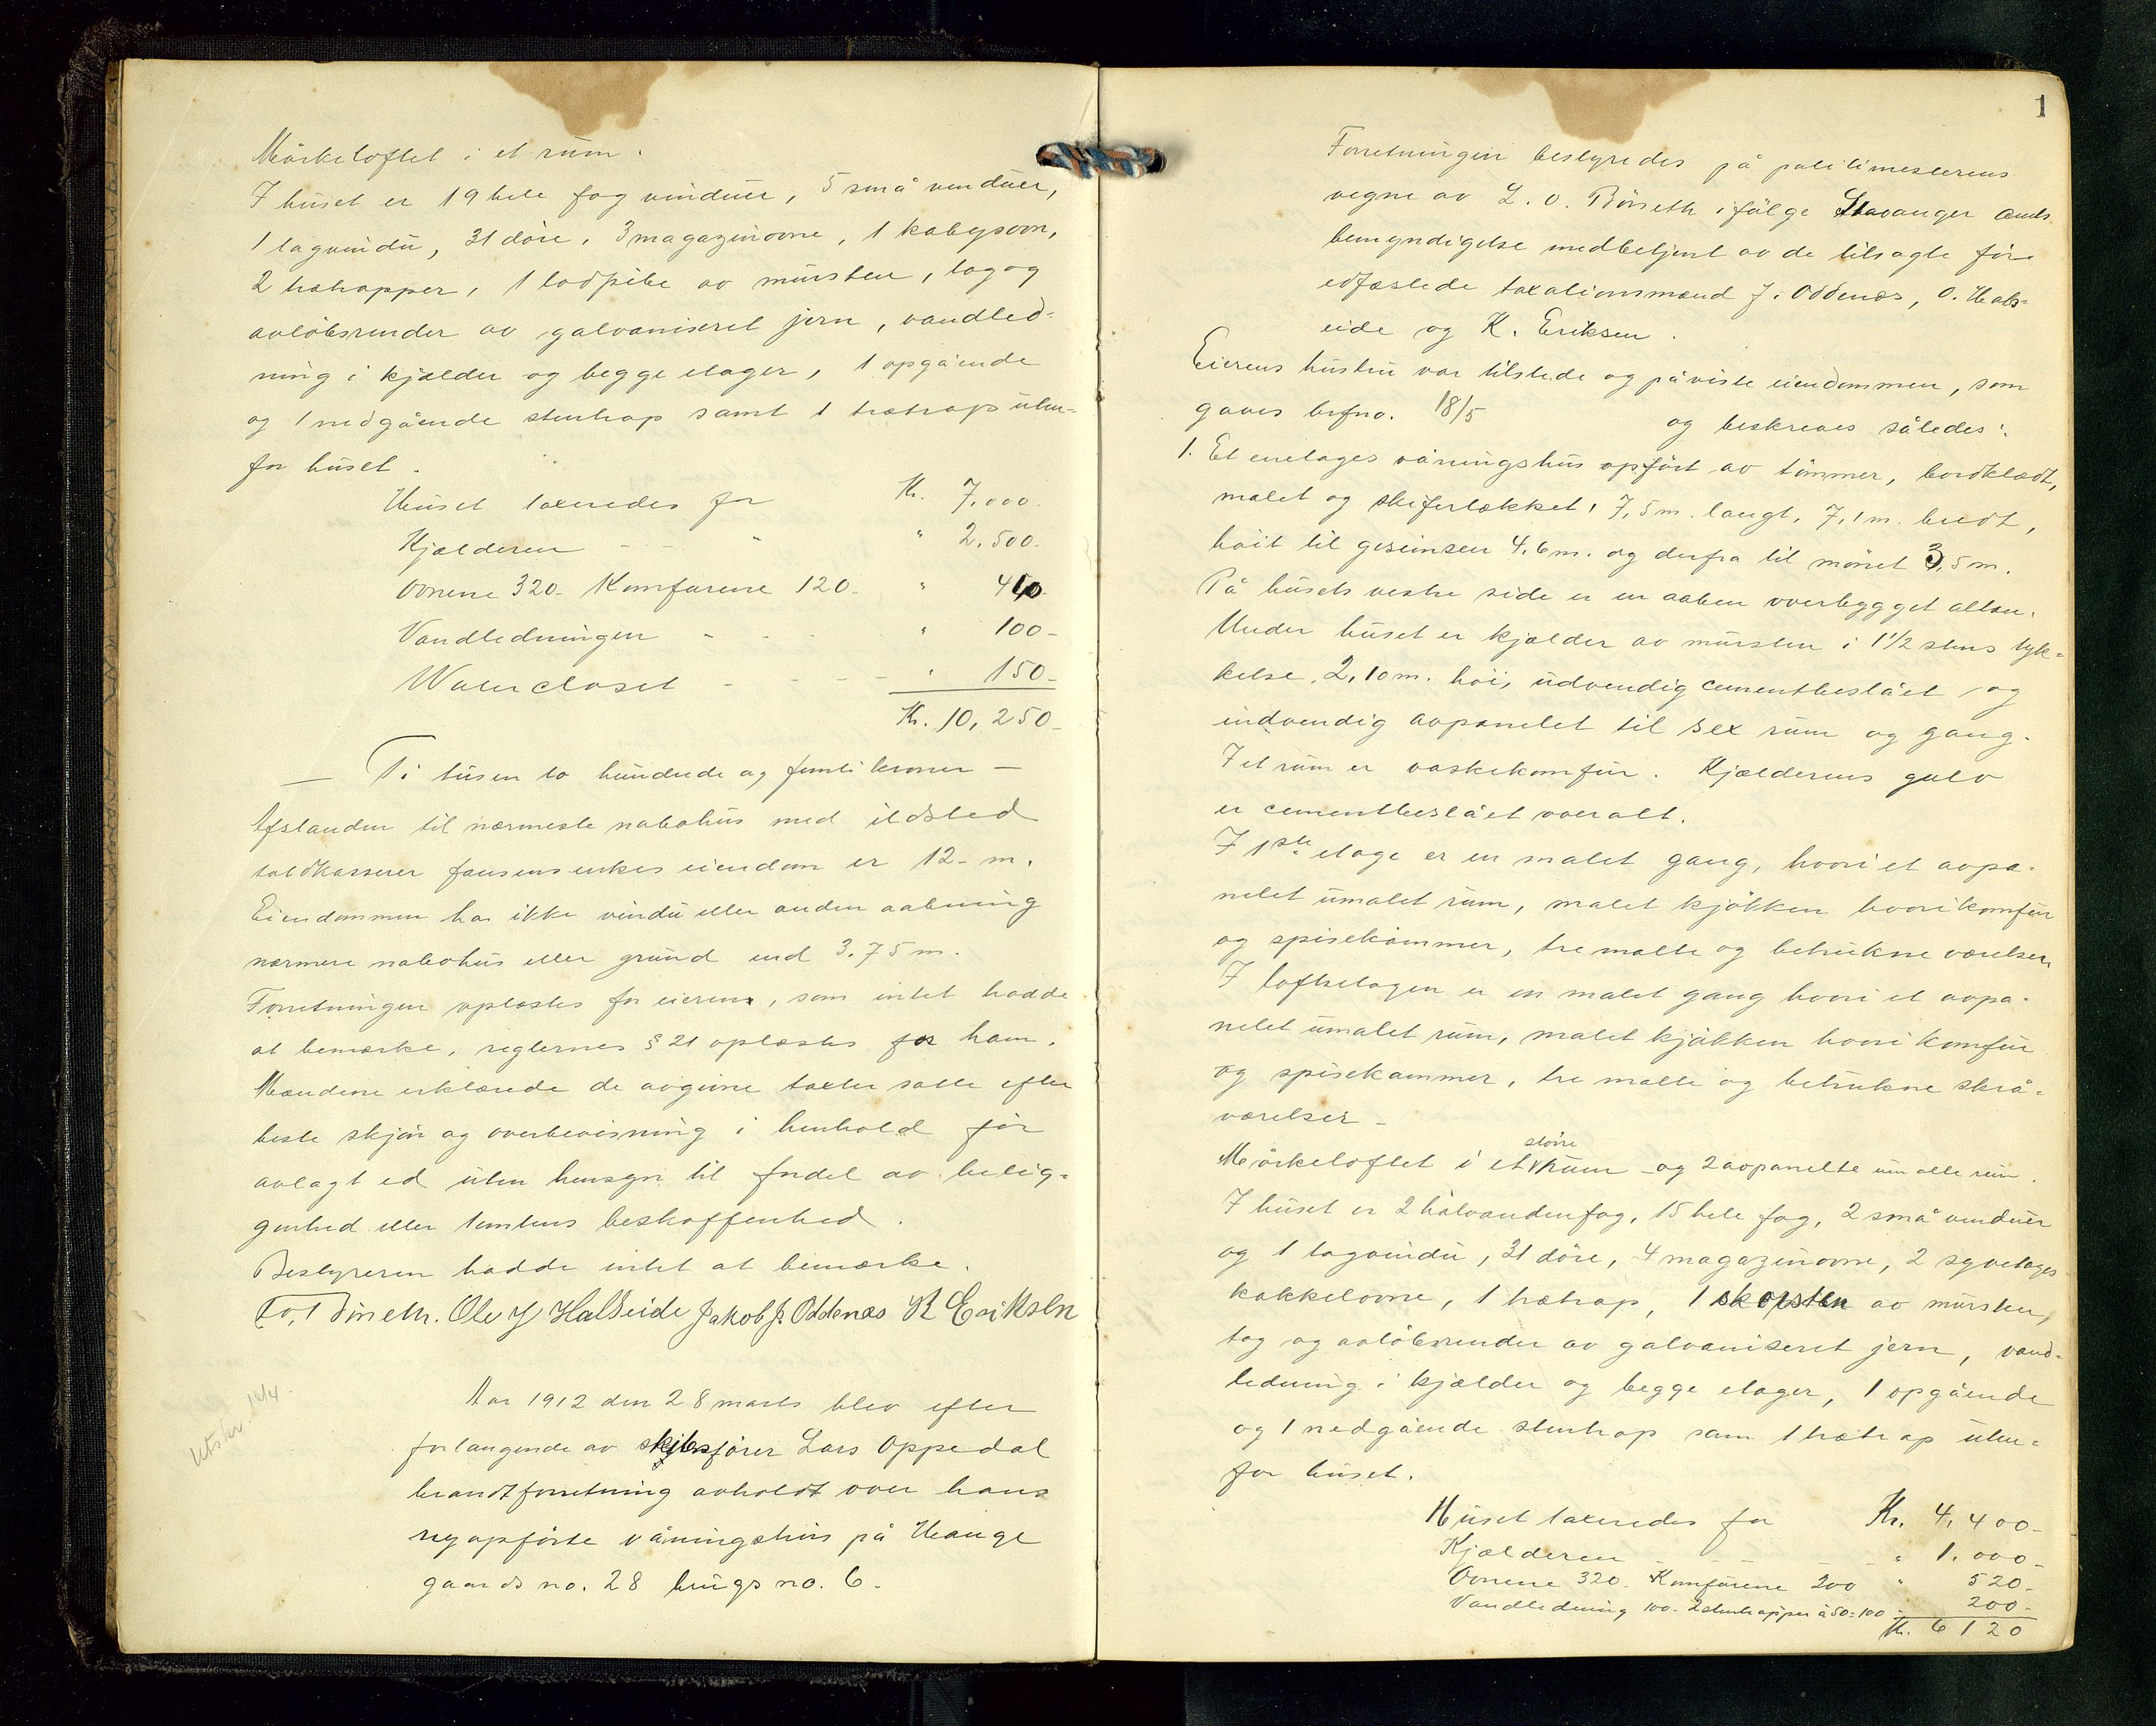 Mørkeloftet i et rum.
I huset er 19 hele fag vinduer, 5 små vinduer,
1 tagvindu, 31 døre, 3 magazinovne, 1 kabysovn,
2 trætrapper, 1 lodpibe av mursten, tag og
avløbsrender av galvaniseret jern, vandled-
ning i kjælder og begge etager, 1 opgående
og 1 nedgående stentrap samt 1 trætrap uten-
for huset.
Huset taxeredes for Kr. 7.000.
Kjælderen - - " " 2.500.
Ovnene 320- Komfurene 120- "
Vandledningen - - - " 100-
Watercloset - - - - " 150-
Kr. 10,250-
— Ti tusen to hundrede og femti kroner —
Afstanden til nærmeste nabohus med ildsted
toldkasserer Jansens enkes eiendom er 12- m.
Eiendommen har ikke vindu eller anden aabning
nærmere nabohus eller grund end 3.75 m.
Forretningen oplæstes for eieren, som intet hadde
at bemærke, reglernes § 21 oplæstes for ham.
Mændene erklærede de avgivne taxter satte efter
beste skjøn og overbevisning i henhold før
avlagt ed uten hensyn til fordel av belig-
genhed eller tomtens beskaffenhed.
Bestyreren hadde intet at bemærke.
Ole J Halseide Jakob J. Oddenæs K Eriksen
Aar 1912 den 28 marts blev efter
forlangende av skibsfører Lars Oppedal
brandtforretning avholdt over hans
nyopførte våningshus på Hauge
gaards no. 28 brugs no. 6.
1
Forretningen bestyredes på politimesterens
vegne av L. O. Børseth ifølge Stavanger amts
bemyndigelse medbetjent av de tilsagte før
edfæstede taxationsmænd J. Oddenæs, O. Hals-
eide og K. Eriksen.
Eierens hustru var tilstede og påviste eiendommen, som
gaves brfno. 18/5 og beskreves således:
1. Et enetages våningshus opført av tømmer, bordklædt,
malet og skifertækket, 7,5 m. langt, 7,1 m. bredt,
høit til gesimsen 4.6 m. og derfra til mønet 3,5 m.
På husets vestre side er en aaben overbygget altan.
Under huset er kjælder av mursten i 1½ stens tyk-
kelse, 2,10 m. høi, udvendig cementbeslået og
indvendig avpanelet til sex rum og gang.
I et rum er vaskekomfur. Kjælderens gulv
er cementbeslået overalt.
I 1ste etage er en malet gang, hvori et avpa-
nelet umalet rum, malet kjøkken hvori komfur
og spisekammer, tre malte og betrukne værelser.
I loftsetagen er en malet gang hvori et avpa-
nelet umalet rum, malet kjøkken hvori komfur
og spisekammer, tre malte og betrukne skrå-
værelser -
større
Mørkeloftet i et rum - og 2 avpanelte umalte rum.
I huset er 2 halvandenfag, 15 hele fag, 2 små vinduer
og 1 tagvindu, 31 døre, 4 magazinovne, 2 syvetages
kakkelovne, 1 trætrap, 1 skorsten av mursten,
tag og avløbsrender av galvaniseret jern, vand-
ledning i kjælder og begge etager, 1 opgående
og 1 nedgående stentrap samt 1 trætrap uten-
for huset.
Huset taxeredes for Kr. 4,400-
Kjælderen - - - - " 1.000-
Ovnene 320. Komfurene 200 " 520-
Vandledning 100- 2 stentrapper à 50=100 - 200-
Kr. 6120